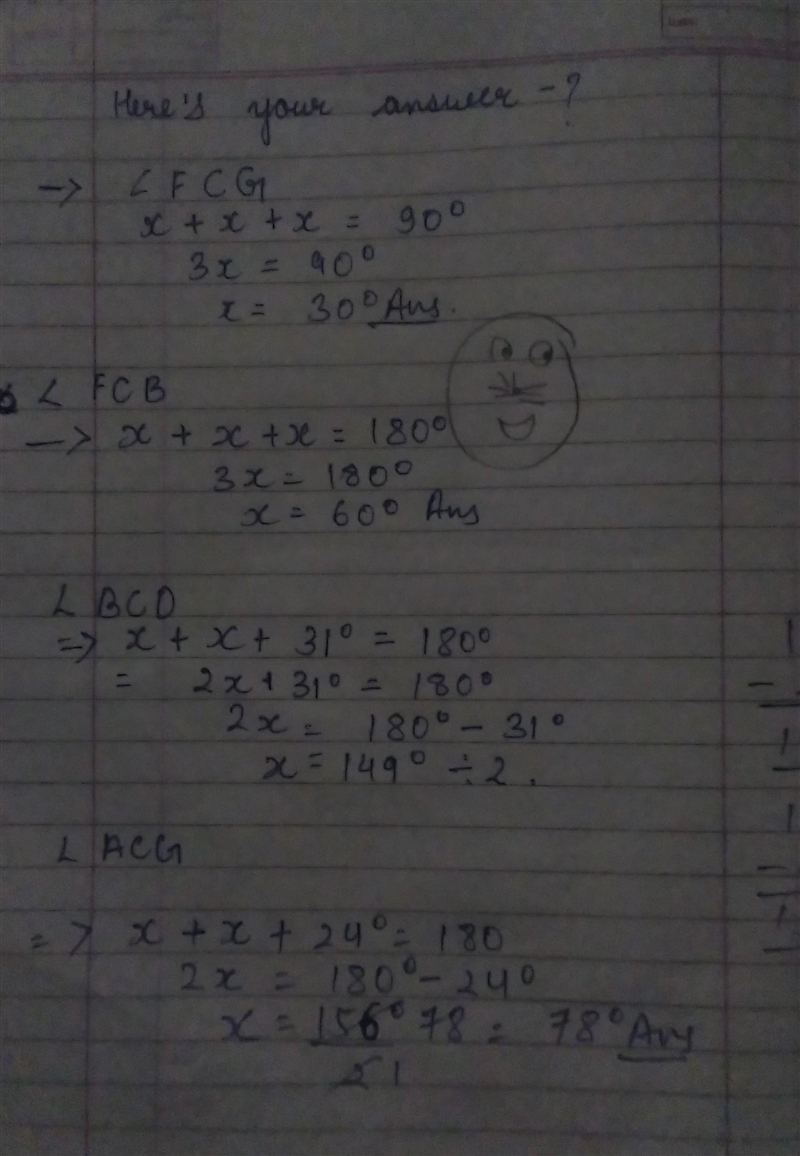 Here's your answer -?
-> ∠ FCG
x + x + x = 90°
3x = 90°
x = 30° Ans.
∠ FCB
-> x + x + x = 180°
3x = 180°
x = 60° Ans
∠ BCD
=> x + x + 31° = 180°
= 2x + 31° = 180°
2x = 180° - 31°
x = 149° ÷ 2 .
∠ ACG
=> x + x + 24° = 180
2x = 180° - 24°
x = 156° 78 = 78° Ans
2 1